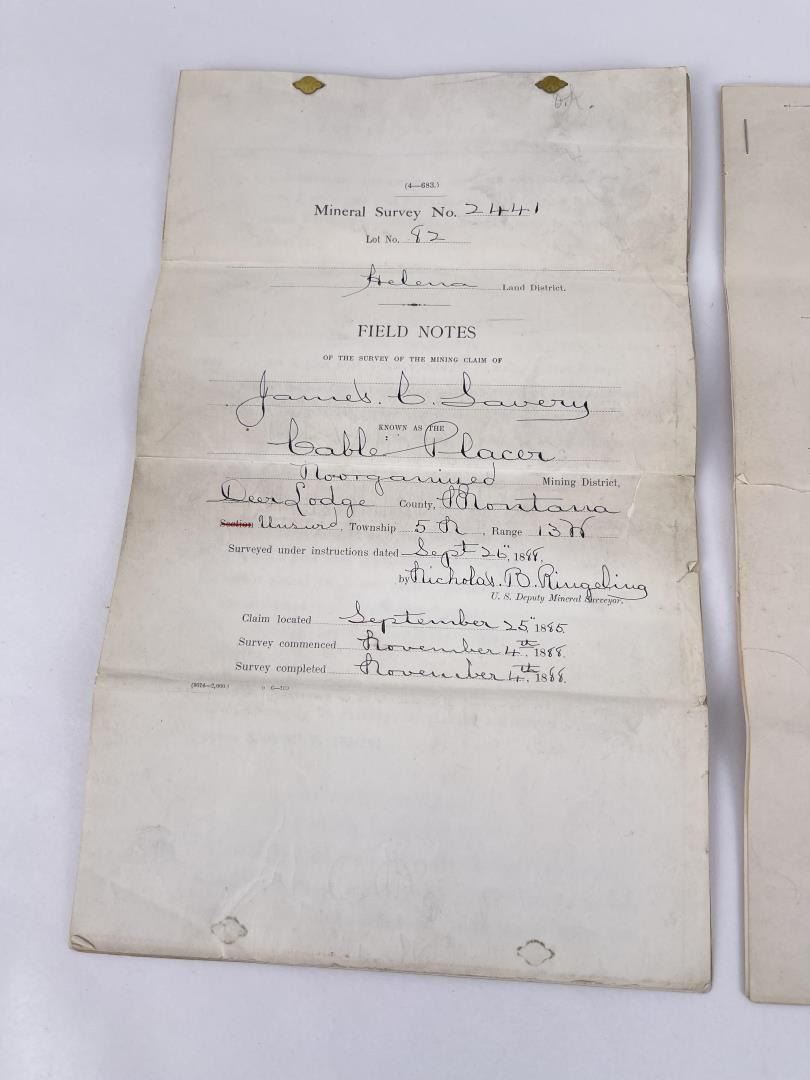 O.K.
(4—683.)
Mineral Survey No. 2441
Lot No. 82
Helena Land District.
FIELD NOTES
OF THE SURVEY OF THE MINING CLAIM OF
James. C. Savery
KNOWN AS THE
Cable Placer
Unorganized Mining District,
Deer Lodge County, Montana
Section Unsurd, Township 5 N, Range 13 W
Surveyed under instructions dated Sept 26", 1888,
by Nicholas. B. Ringeling
U. S. Deputy Mineral Surveyor.
Claim located September 25", 1885.
Survey commenced November 4th, 1888.
Survey completed November 4th, 1888.